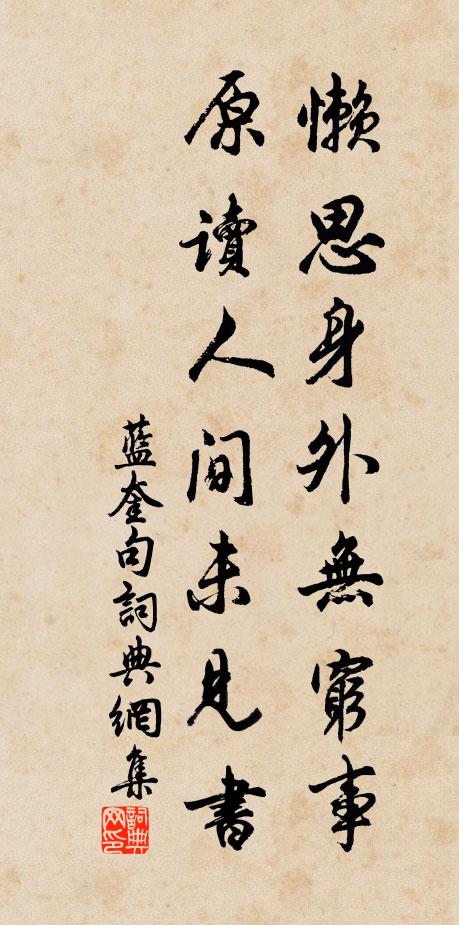 懶思身外無窮事
原讀人間未見書
藍奎句詞典網集
詞典网印